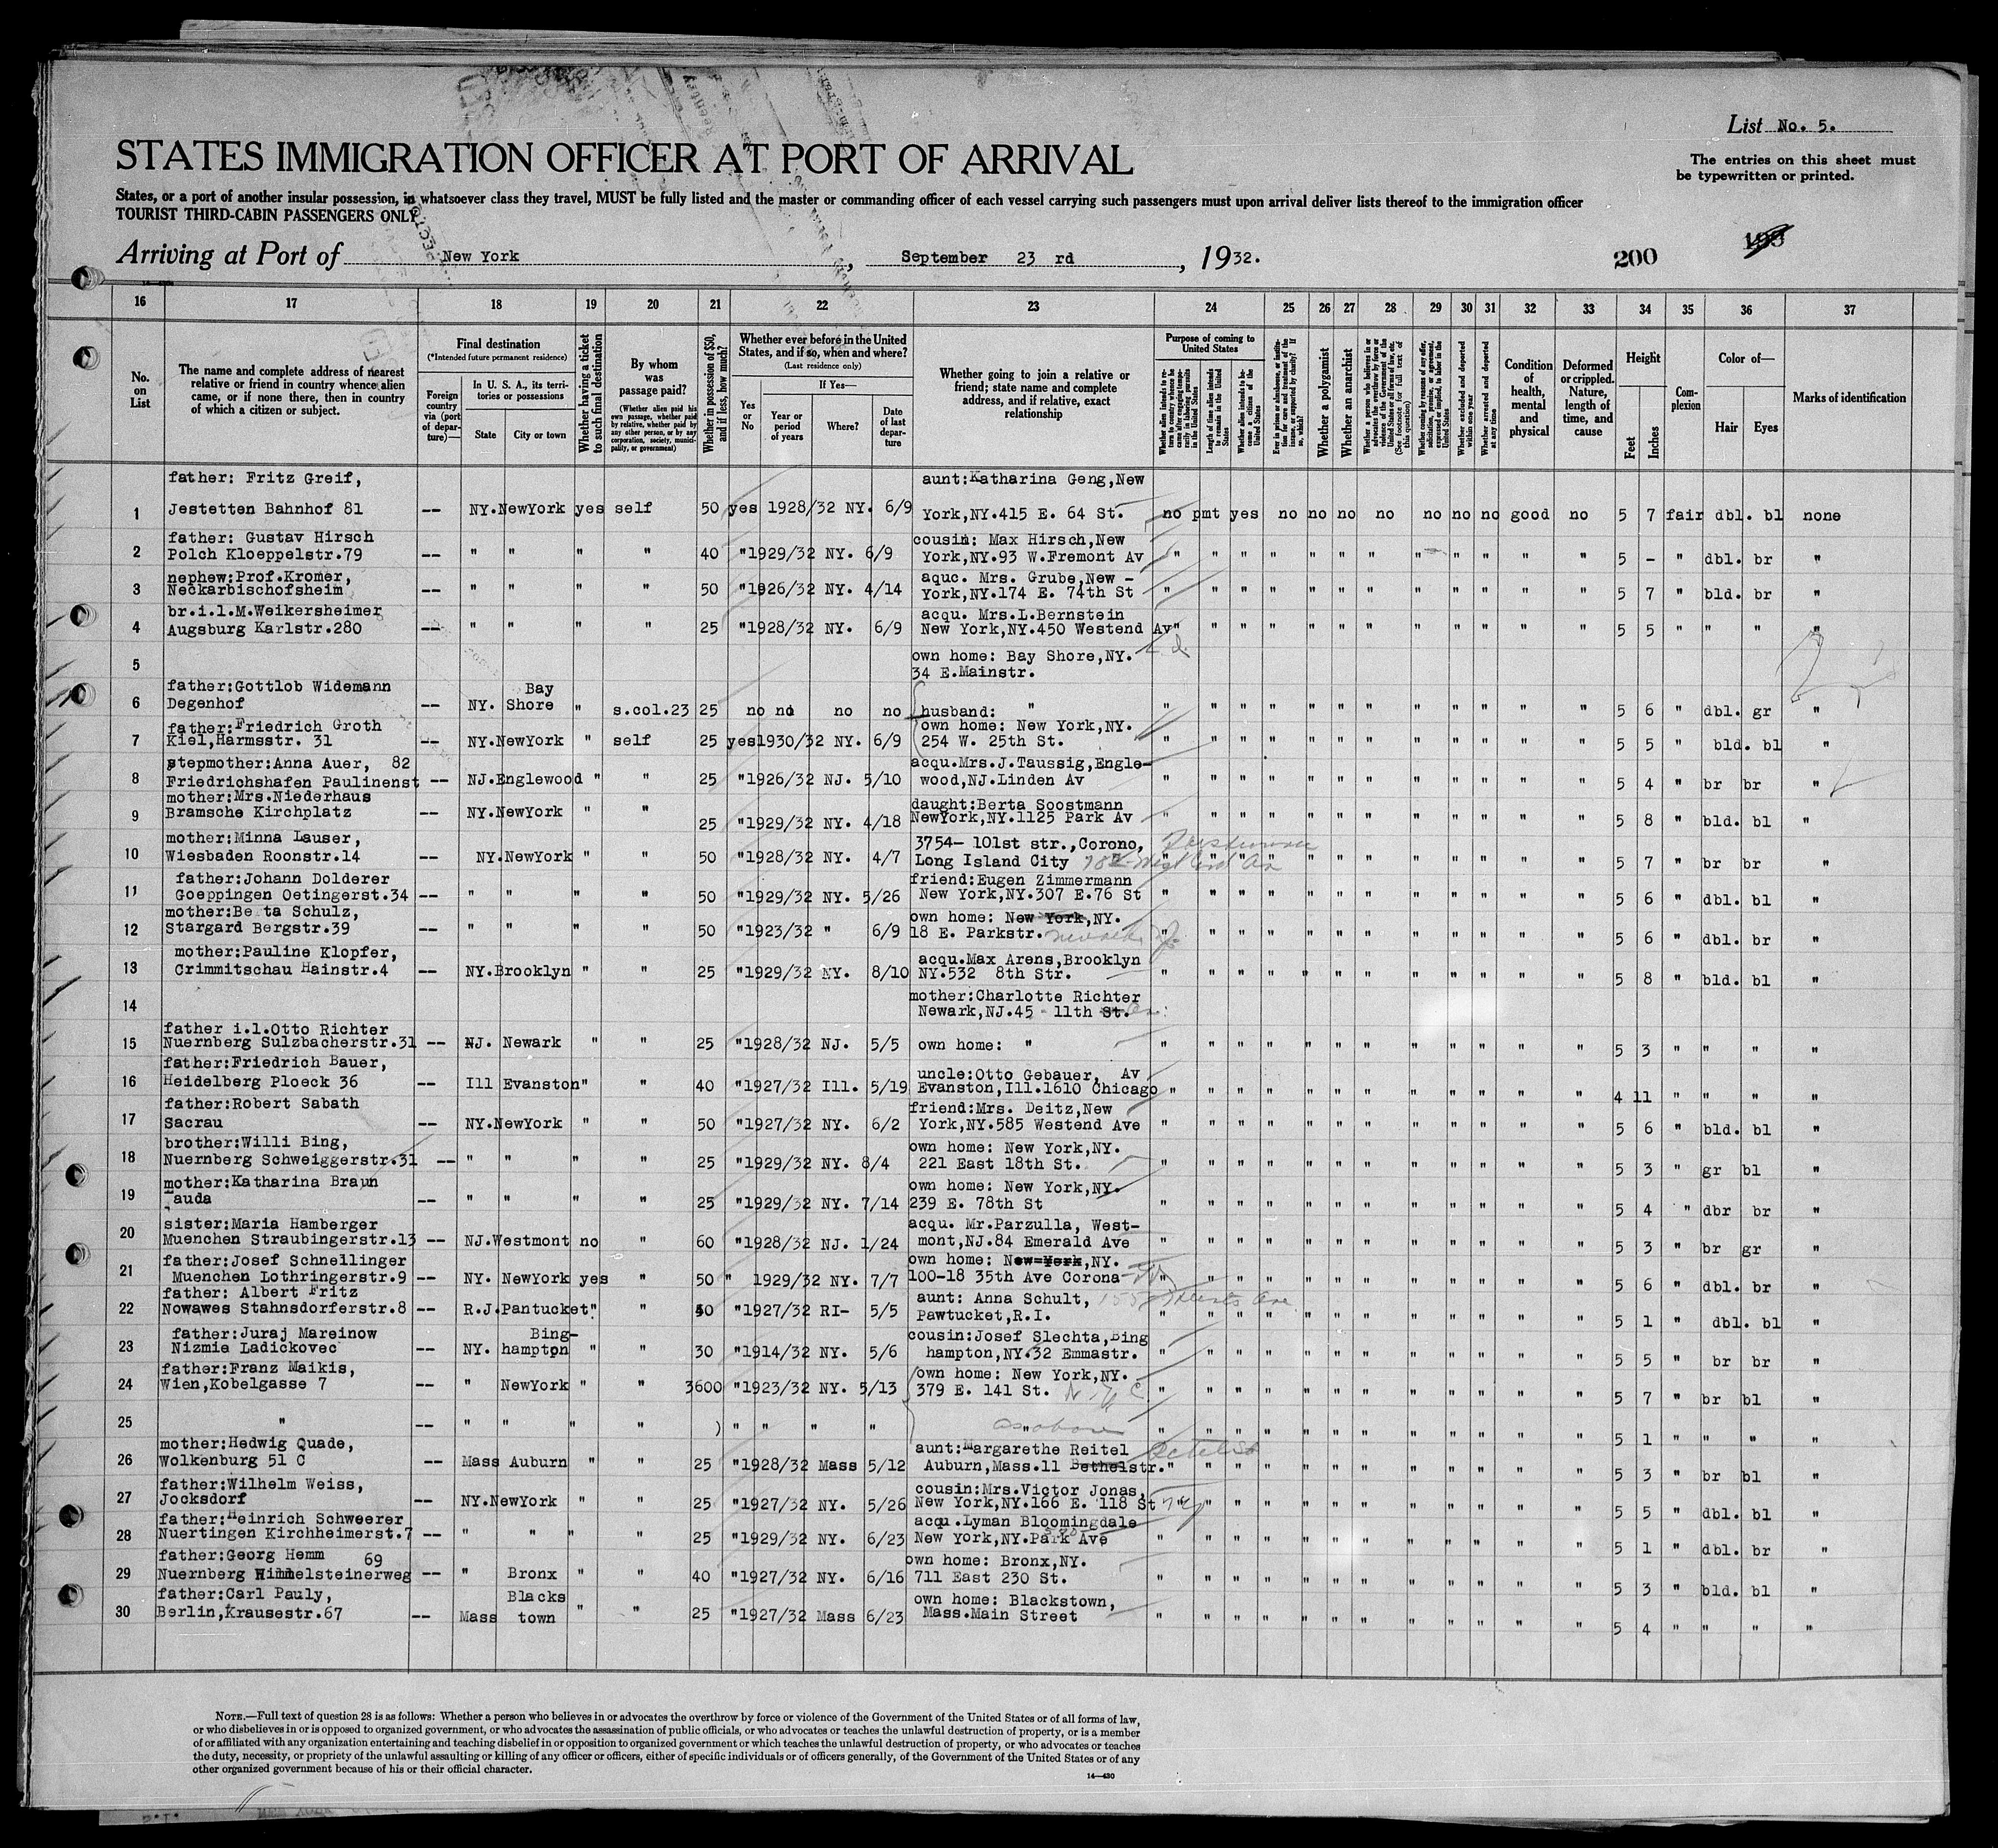 List No. 5.
The entries on this sheet must
be typewritten or printed.
STATES IMMIGRATION OFFICER AT PORT OF ARRIVAL
States, or a port of another insular possession, in whatsoever class they travel, MUST be fully listed and the master or commanding officer of each vessel carrying such passengers must upon arrival deliver lists thereof to the immigration officer
TOURIST THIRD-CABIN PASSENGERS ONLY
Arriving at Port of New York, September 23 rd, 1932.
200
16 17 18 19 20 21 22 23 24 25 26 27 28 29 30 31 32 33 34 35 36 37
No. on List
The name and complete address of nearest relative or friend in country whence alien came, or if none there, then in country of which a citizen or subject.
Final destination
(*Intended future permanent residence)
Foreign country via (port of departure)—
In U. S. A., its territories or possessions
State
City or town
Whether having a ticket to such final destination
By whom was passage paid?
(Whether alien paid his own passage, whether paid by relative, whether paid by any other person, or by any corporation, society, municipality, or government)
Whether in possession of $50, and if less, how much?
Whether ever before in the United States, and if so, when and where?
(Last residence only)
Yes or No
If Yes—
Year or period of years
Where?
Date of last departure
Whether going to join a relative or friend; state name and complete address, and if relative, exact relationship
Purpose of coming to United States
Whether alien intends to return to country whence he came after engaging temporarily in laboring pursuits in the United States
Length of time alien intends to remain in the United States
Whether alien intends to become a citizen of the United States
Ever in prison or almshouse, or institution for care and treatment of the insane, or supported by charity? If so, which?
Whether a polygamist
Whether an anarchist
Whether a person who believes in or advocates the overthrow by force or violence of the Government of the United States or all forms of law, etc. (See footnote for full text of this question)
Whether coming by reasons of any offer, solicitation, promise, or agreement, expressed or implied, to labor in the United States
Whether excluded and deported within one year
Whether arrested and deported at any time
Condition of health, mental and physical
Deformed or crippled. Nature, length of time, and cause
Height
Feet
Inches
Complexion
Color of—
Hair
Eyes
Marks of identification
father: Fritz Greif, aunt:Katharina Geng,New
1 Jestetten Bahnhof 81 -- NY. NewYork yes self 50 yes 1928/32 NY. 6/9 York,NY.415 E. 64 St. no pmt yes no no no no no no no good no 5 7 fair dbl. bl none
father: Gustav Hirsch cousin: Max Hirsch,New
2 Polch Kloeppelstr.79 -- " " " " 40 " 1929/32 NY. 6/9 York,NY.93 W.Fremont Av " " " " " " " " " " " " 5 - " dbl. br "
nephew:Prof.Kromer, aquc. Mrs. Grube,New -
3 Neckarbischofsheim -- " " " " 50 " 1926/32 NY. 4/14 York,NY.174 E. 74th St " " " " " " " " " " " " 5 7 " bld. br "
br.i.l.M.Weikersheimer acqu. Mrs.L.Bernstein
4 Augsburg Karlstr.280 -- " " " " 25 " 1928/32 NY. 6/9 New York,NY.450 Westend Av " " " " " " " " " " " " 5 5 " " " "
5 own home: Bay Shore,NY.
34 E.Mainstr.
father:Gottlob Widemann Bay
6 Degenhof -- NY. Shore " s.col.23 25 no no no no husband: " " " " " " " " " " " " " 5 6 " dbl. gr "
father:Friedrich Groth own home: New York,NY.
7 Kiel,Harmsstr. 31 -- NY. NewYork " self 25 yes 1930/32 NY. 6/9 254 W. 25th St. " " " " " " " " " " " " 5 5 " bld. bl "
stepmother:Anna Auer, 82 acqu.Mrs.J.Taussig,Engle-
8 Friedrichshafen Paulinenst -- NJ. Englewood " " 25 " 1926/32 NJ. 5/10 wood,NJ.Linden Av " " " " " " " " " " " " 5 4 " br br "
mother:Mrs.Niederhaus daught:Berta Soostmann
9 Bramsche Kirchplatz -- NY. NewYork " " 25 " 1929/32 NY. 4/18 NewYork,NY.1125 Park Av " " " " " " " " " " " " 5 8 " bld. bl "
mother:Minna Lauser, 3754- 101st str.,Corono,
10 Wiesbaden Roonstr.14 -- NY. NewYork " " 50 " 1928/32 NY. 4/7 Long Island City " " " " " " " " " " " " 5 7 " br br "
father:Johann Dolderer friend:Eugen Zimmermann
11 Goeppingen Oetingerst.34 -- " " " " 50 " 1929/32 NY. 5/26 New York,NY.307 E.76 St " " " " " " " " " " " " 5 6 " dbl. bl "
mother:Be ta Schulz, own home: New York,NY.
12 Stargard Bergstr.39 -- " " " " 50 " 1923/32 " 6/9 18 E. Parkstr. " " " " " " " " " " " " 5 6 " dbl. br "
mother:Pauline Klopfer, acqu.Max Arens,Brooklyn
13 Crimmitschau Hainstr.4 -- NY. Brooklyn " " 25 " 1929/32 NY. 8/10 NY.532 8th Str. " " " " " " " " " " " " 5 8 " bld. bl "
14 mother:Charlotte Richter
Newark,NJ.45 - 11th St.
father i.l.Otto Richter
15 Nuernberg Sulzbacherstr.31 -- NJ. Newark " " 25 " 1928/32 NJ. 5/5 own home: " " " " " " " " " " " " " 5 3 " " " "
father:Friedrich Bauer, uncle:Otto Gebauer, Av
16 Heidelberg Ploeck 36 -- Ill Evanston " " 40 " 1927/32 Ill. 5/19 Evanston,Ill.1610 Chicago " " " " " " " " " " " " 4 11 " " " "
father:Robert Sabath friend:Mrs. Deitz,New
17 Sacrau -- NY. NewYork " " 50 " 1927/32 NY. 6/2 York,NY.585 Westend Ave " " " " " " " " " " " " 5 6 " bld. bl "
brother:Willi Bing, own home: New York,NY.
18 Nuernberg Schweiggerstr.31 -- " " " " 25 " 1929/32 NY. 8/4 221 East 18th St. " " " " " " " " " " " " 5 3 " gr bl "
mother:Katharina Braun own home: New York,NY.
19 Lauda -- " " " " 25 " 1929/32 NY. 7/14 239 E. 78th St " " " " " " " " " " " " 5 4 " dbr br "
sister:Maria Hamberger acqu. Mr.Parzulla, West-
20 Muenchen Straubingerstr.13 -- NJ. Westmont no " 60 " 1928/32 NJ. 1/24 mont,NJ.84 Emerald Ave " " " " " " " " " " " " 5 3 " br gr "
father:Josef Schnellinger own home: New York,NY.
21 Muenchen Lothringerstr.9 -- NY. NewYork yes " 50 " 1929/32 NY. 7/7 100-18 35th Ave Corona " " " " " " " " " " " " 5 6 " dbl. br "
father: Albert Fritz aunt: Anna Schult,
22 Nowawes Stahnsdorferstr.8 -- R.J. Pantucket " " 50 " 1927/32 RI- 5/5 Pawtucket,R.I. " " " " " " " " " " " " 5 1 " dbl. bl "
father:Juraj Mareinow Bing- cousin:Josef Slechta,Bing
23 Nizmie Ladickovec -- NY. hampton " " 30 " 1914/32 NY. 5/6 hampton,NY.32 Emmastr. " " " " " " " " " " " " 5 5 " br br "
father:Franz Maikis, own home: New York,NY.
24 Wien,Kobelgasse 7 -- " NewYork " " 3600 " 1923/32 NY. 5/13 379 E. 141 St. N.Y.C. " " " " " " " " " " " " 5 7 " br bl "
25 " -- " " " " ) " " " " as above " " " " " " " " " " " " 5 1 " " " "
mother:Hedwig Quade, aunt:Margarethe Reitel
26 Wolkenburg 51 C -- Mass Auburn " " 25 " 1928/32 Mass 5/12 Auburn,Mass.11 Bethelstr. " " " " " " " " " " " " 5 3 " br bl "
father:Wilhelm Weiss, cousin:Mrs.Victor Jonas,
27 Jocksdorf -- NY. NewYork " " 25 " 1927/32 NY. 5/26 New York,NY.166 E. 118 St " " " " " " " " " " " " 5 5 " dbl. bl "
father:Heinrich Schweerer acqu.Lyman Bloomingdale
28 Nuertingen Kirchheimerst.7 -- " " " " 25 " 1929/32 NY. 6/23 New York,NY.Park Ave " " " " " " " " " " " " 5 1 " dbl. br "
father:Georg Hemm 69 own home: Bronx,NY.
29 Nuernberg Himmelsteinerweg -- " Bronx " " 40 " 1927/32 NY. 6/16 711 East 230 St. " " " " " " " " " " " " 5 3 " bld. bl "
father:Carl Pauly, Blacks own home: Blackstown,
30 Berlin,Krausestr.67 -- Mass town " " 25 " 1927/32 Mass 6/23 Mass.Main Street " " " " " " " " " " " " 5 4 " " " "
NOTE.—Full text of question 28 is as follows: Whether a person who believes in or advocates the overthrow by force or violence of the Government of the United States or of all forms of law,
or who disbelieves in or is opposed to organized government, or who advocates the assassination of public officials, or who advocates or teaches the unlawful destruction of property, or is a member
of or affiliated with any organization entertaining and teaching disbelief in or opposition to organized government or which teaches the unlawful destruction of property, or who advocates or teaches
the duty, necessity, or propriety of the unlawful assaulting or killing of any officer or officers, either of specific individuals or of officers generally, of the Government of the United States or of any
other organized government because of his or their official character.
14—430